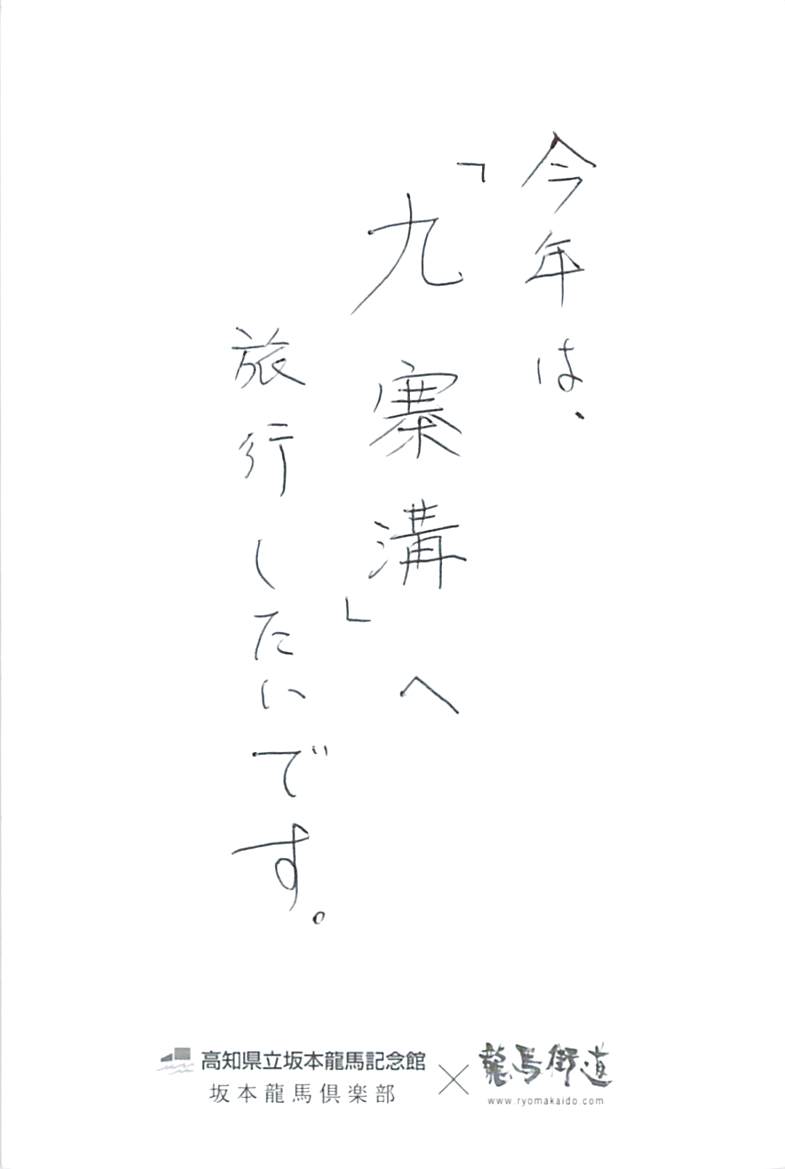 今年は、
「九寨溝」へ
旅行したいです。
高知県立坂本龍馬記念館
坂本龍馬倶楽部
×
龍馬街道
www.ryomakaido.com